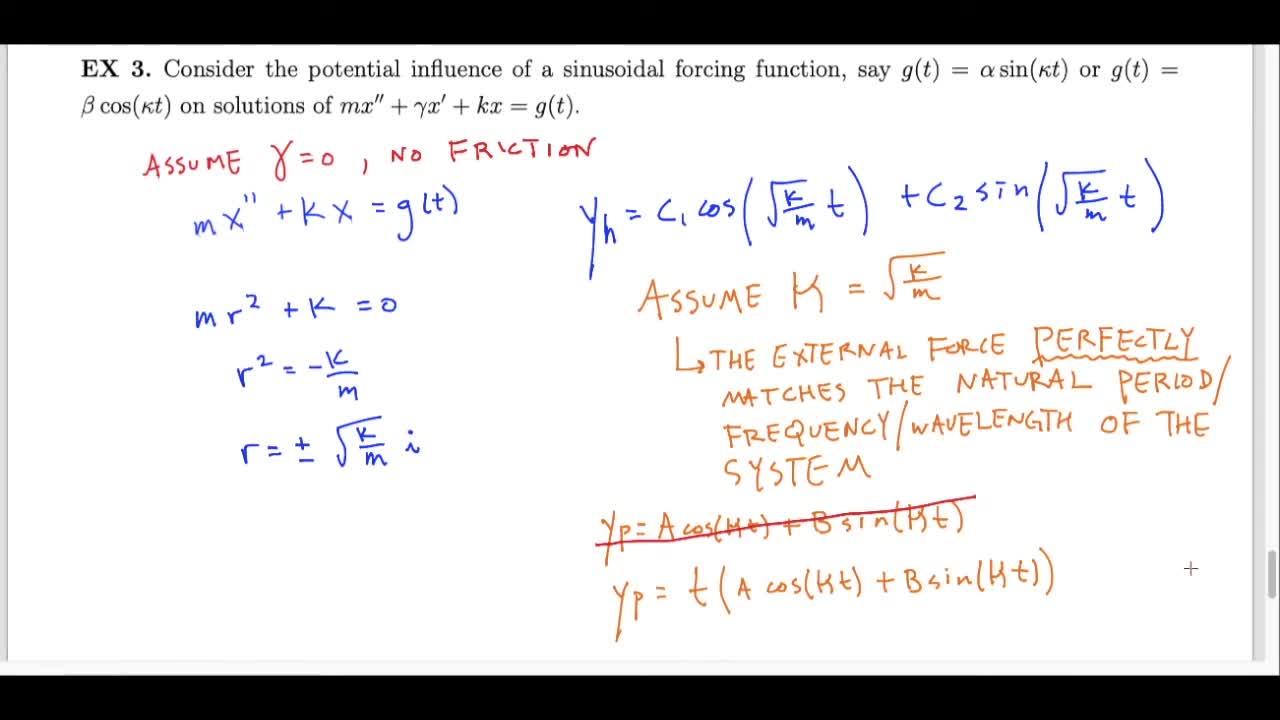 EX 3. Consider the potential influence of a sinusoidal forcing function, say g(t) = α sin(κt) or g(t) =
β cos(κt) on solutions of mx″ + γx′ + kx = g(t).
ASSUME γ = 0, NO FRICTION
mx″ + kx = g(t)
y_h = C₁ cos(√(k/m) t) + C₂ sin(√(k/m) t)
mr² + k = 0
r² = -k/m
r = ± √(k/m) i
ASSUME κ = √(k/m)
↳ THE EXTERNAL FORCE PERFECTLY
MATCHES THE NATURAL PERIOD/
FREQUENCY/WAVELENGTH OF THE
SYSTEM
yp = A cos(κt) + B sin(κt)
yp = t(A cos(κt) + B sin(κt))